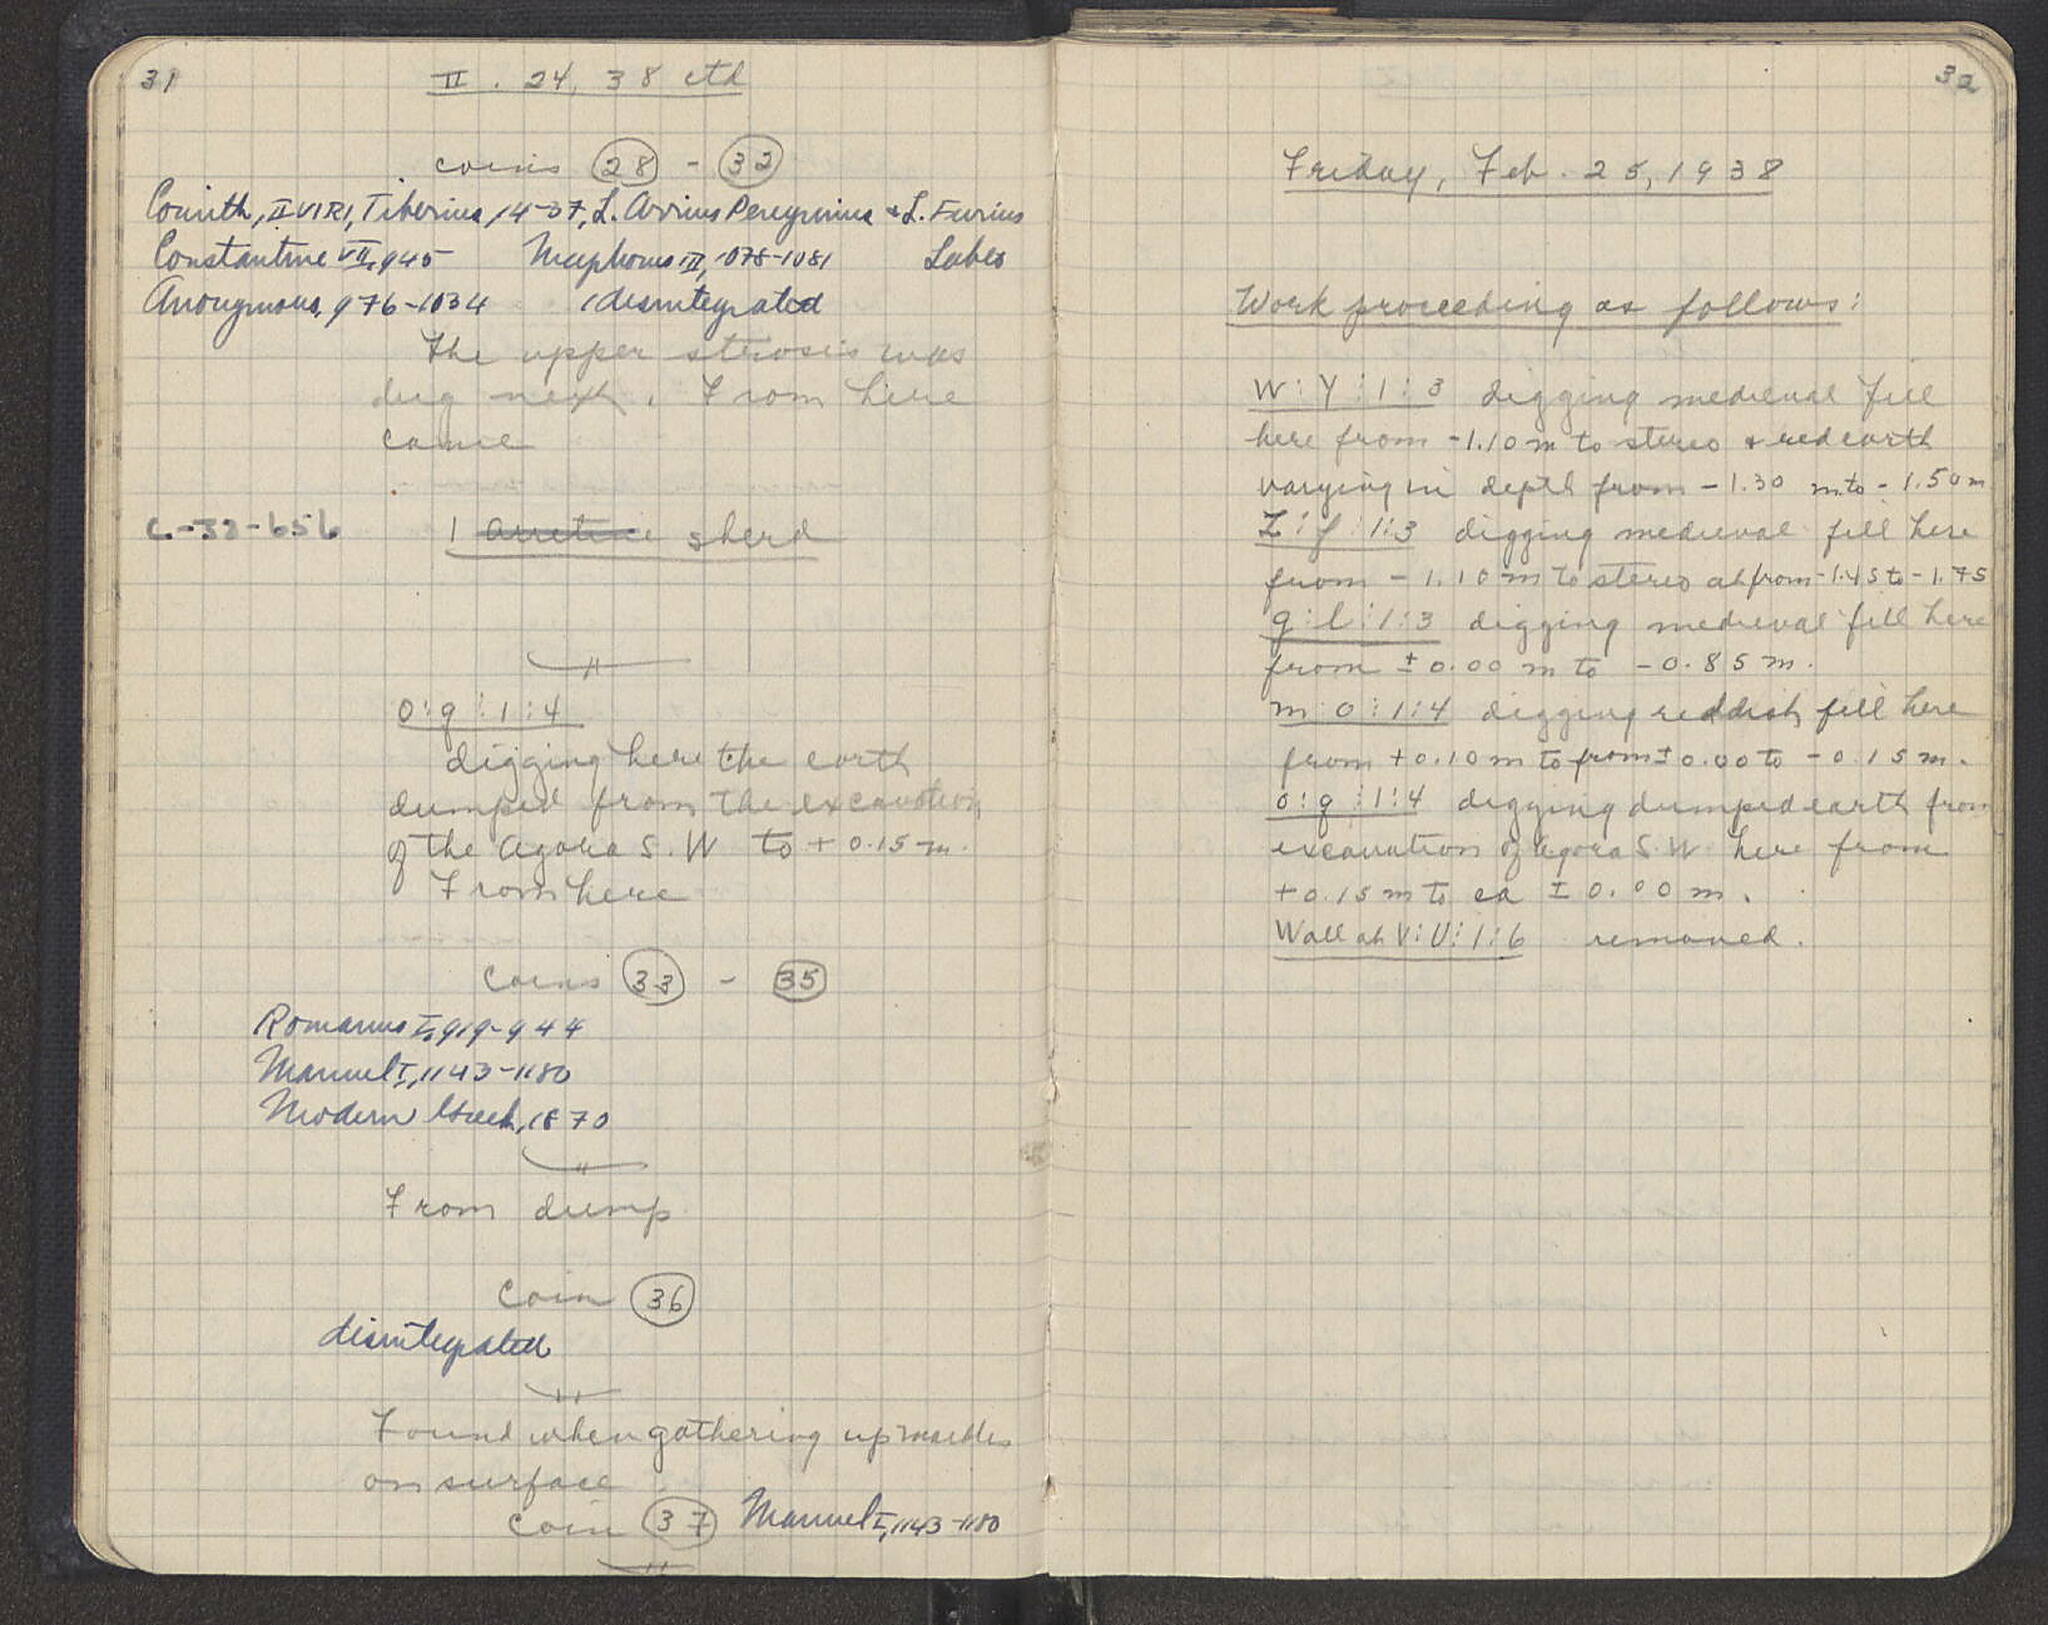 31
II. 24, 38 ctd
coins 28 - 32
Corinth, II VIRI, Tiberius 14-37, L. Arrius Peregrinus + L. Furius
Labeo
Constantine VII, 945 Nicephorus III, 1078-1081
Anonymous, 976-1034 1 disintegrated
The upper strosis was
dug next. From here
came
C-38-656 1 arretine sherd
o:q:1:4
digging here the earth
dumped from the excavation
of the agora S.W to +0.15 m.
From here
coins 33 - 35
Romanus I, 919-944
Manuel I, 1143-1180
Modern Greek, 1870
From dump
coin 36
disintegrated
Found when gathering up marbles
on surface
coin 37 Manuel I, 1143-1180
32
Friday, Feb. 25, 1938
Work proceeding as follows:
W:Y:1:3 digging medieval fill
here from -1.10 m to stereo + red earth
varying in depth from -1.30 m to -1.50 m
Z:f:1:3 digging medieval fill here
from -1.10 m to stereo at from -1.45 to -1.75
g:l:1:3 digging medieval fill here
from ±0.00 m to -0.85 m.
m:o:1:4 digging reddish fill here
from +0.10 m to from ±0.00 to -0.15 m.
o:q:1:4 digging dumped earth from
excavation of agora S.W. here from
+0.15 m to ca ±0.00 m.
Wall at V:U:1:6 removed.